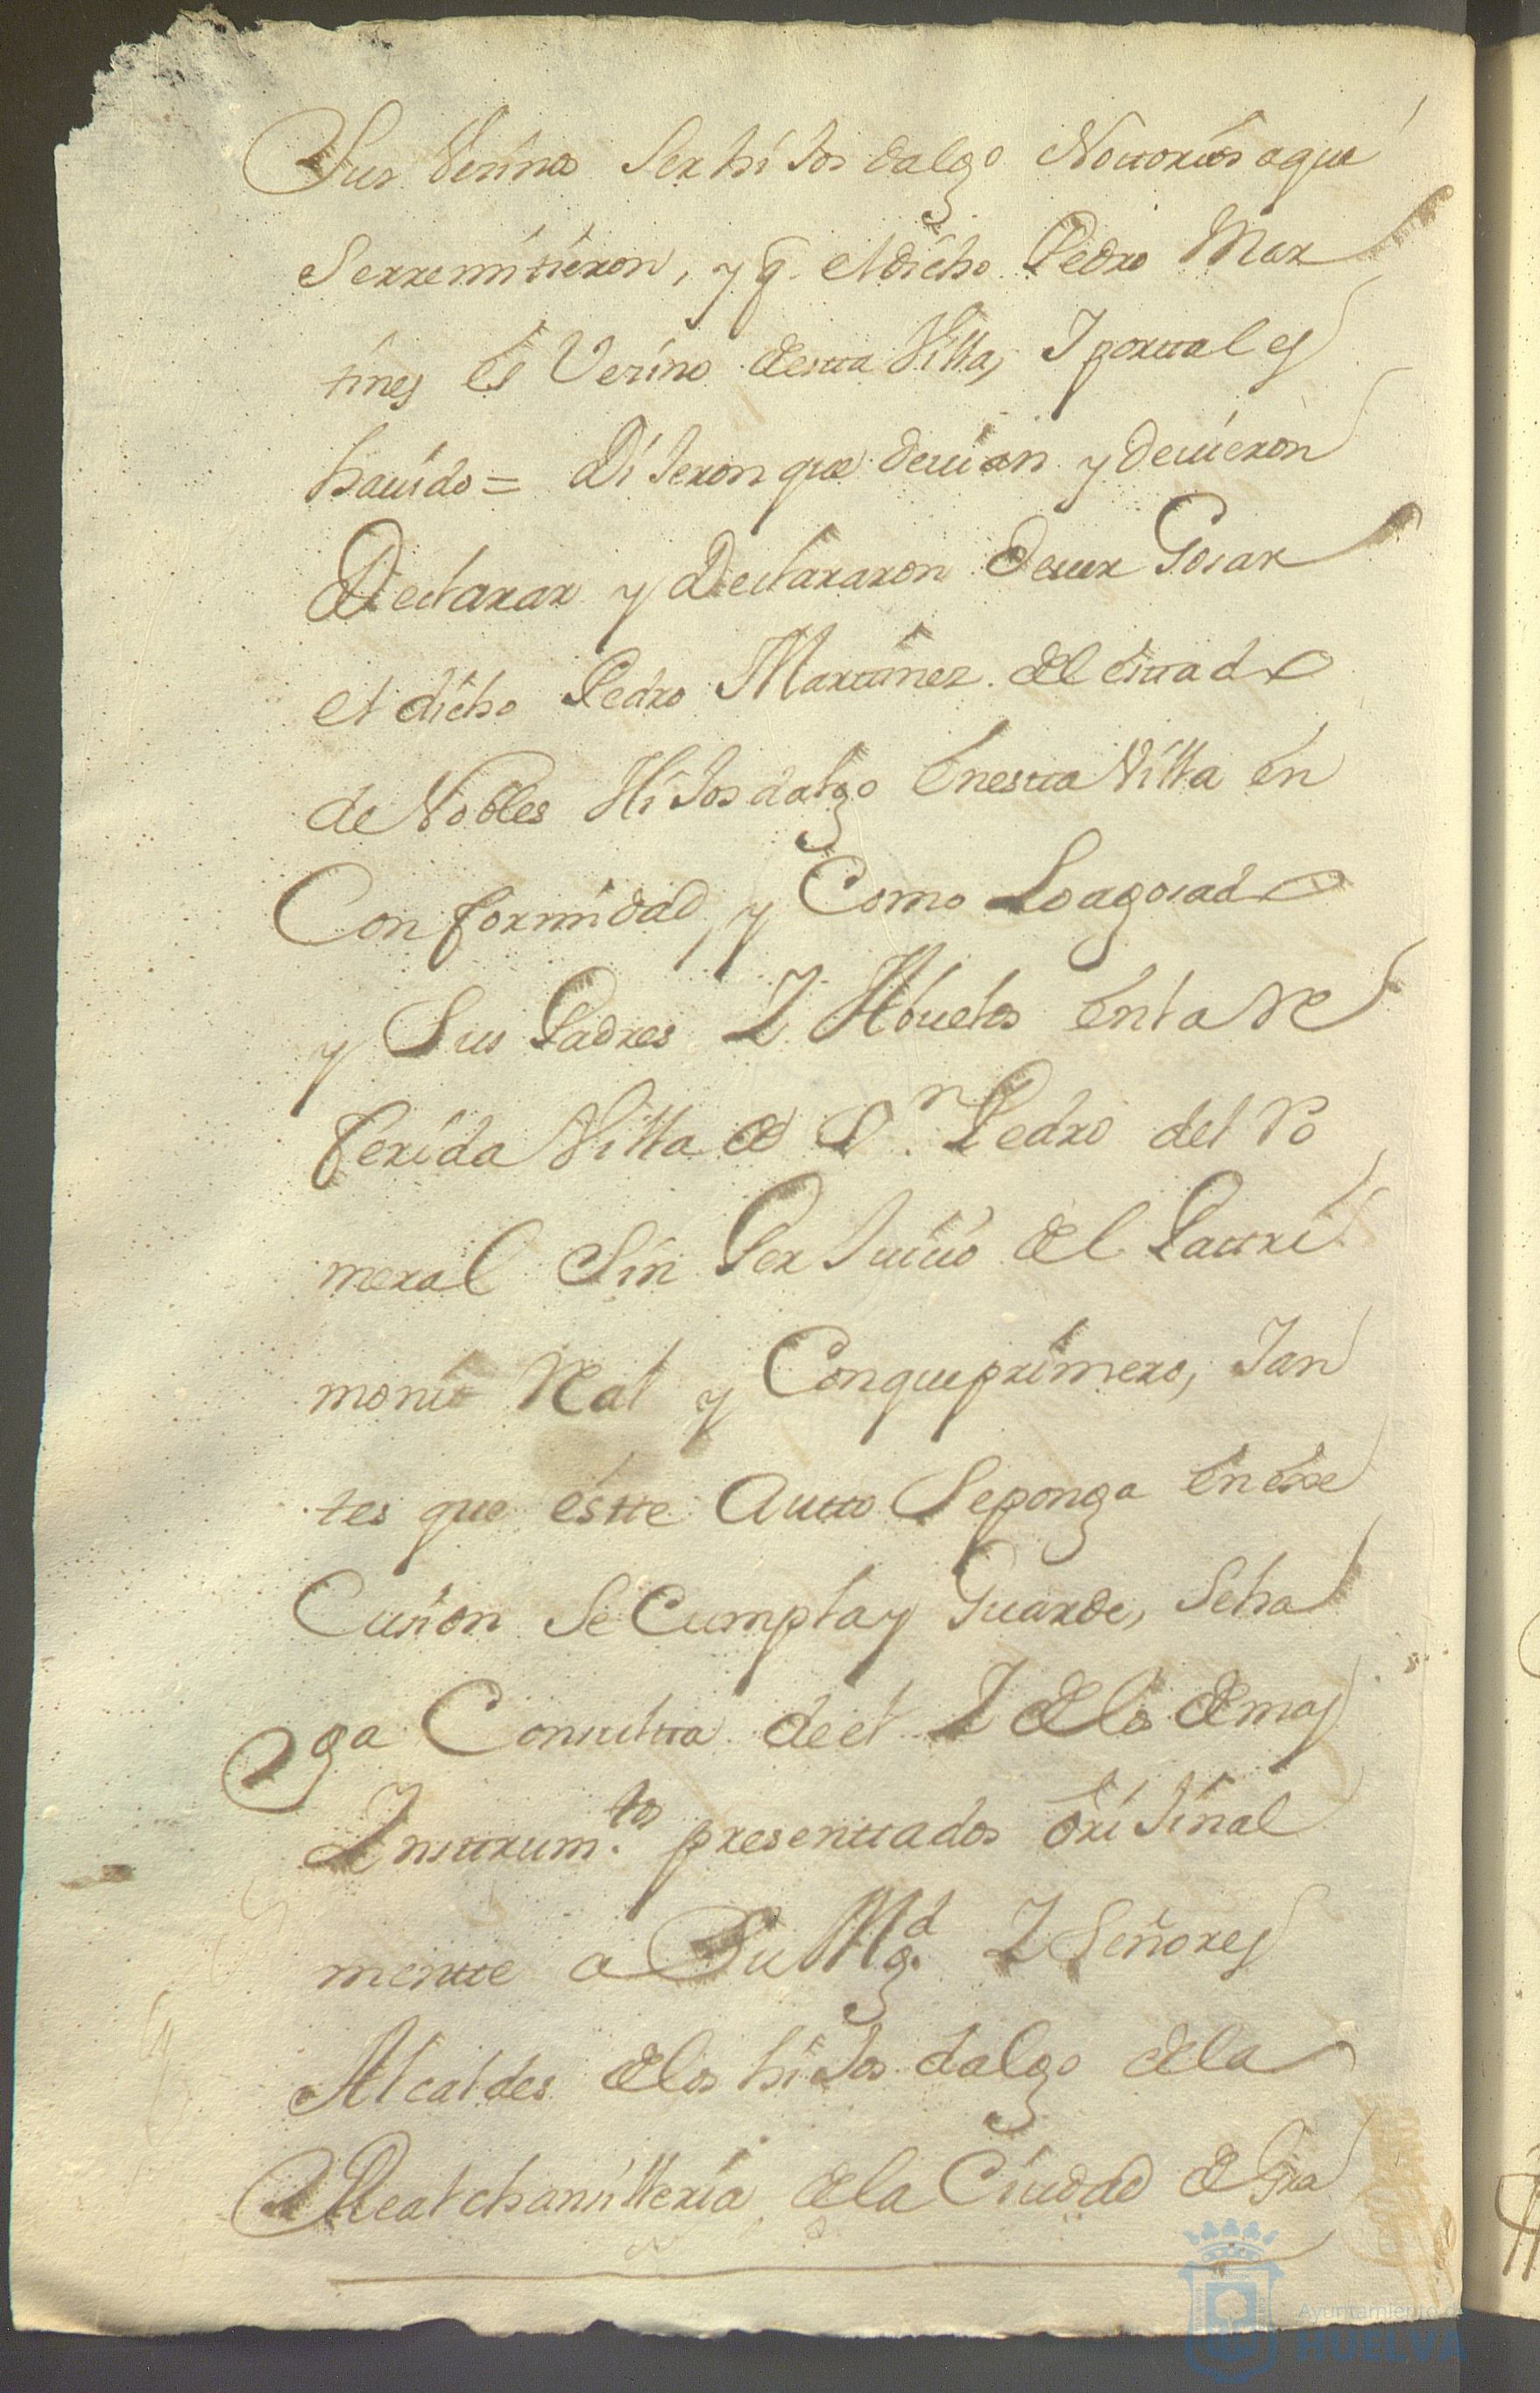 Sus Vesinos ser hiJos dalgo Nottorios aque
Serremitieron, y q̃ el dicho Pedro Mar
tines es Vezino desta Villa, Y portal es
hauido = DiJeron que deuian y deuieron
Declarar y Declararon deuer Gosar
el dicho Pedro Marttinez del esttado
de Nobles HiJosdalgo en estta Villa en
Conformidad y Como Loagosado
y Sus Padres Y Abuelos en la Re
ferida Villa de Dn. Pedro del Ro
meral Sin PerJuicio del Pattri
monio Real y Conqueprimero, Yan
tes que estte Autto Seponga en exe
Cusion Se Cumpla y Guarde, Seha
ga Consultta de el Y de los demas
Insttrum.tos presenttados oriJinal
mentte a Su Mgd. Y Señores
Alcaldes de los hiJos dalgo de la
Real chansilleria de la Ciudad de Gra
Ayuntamiento de
HUELVA